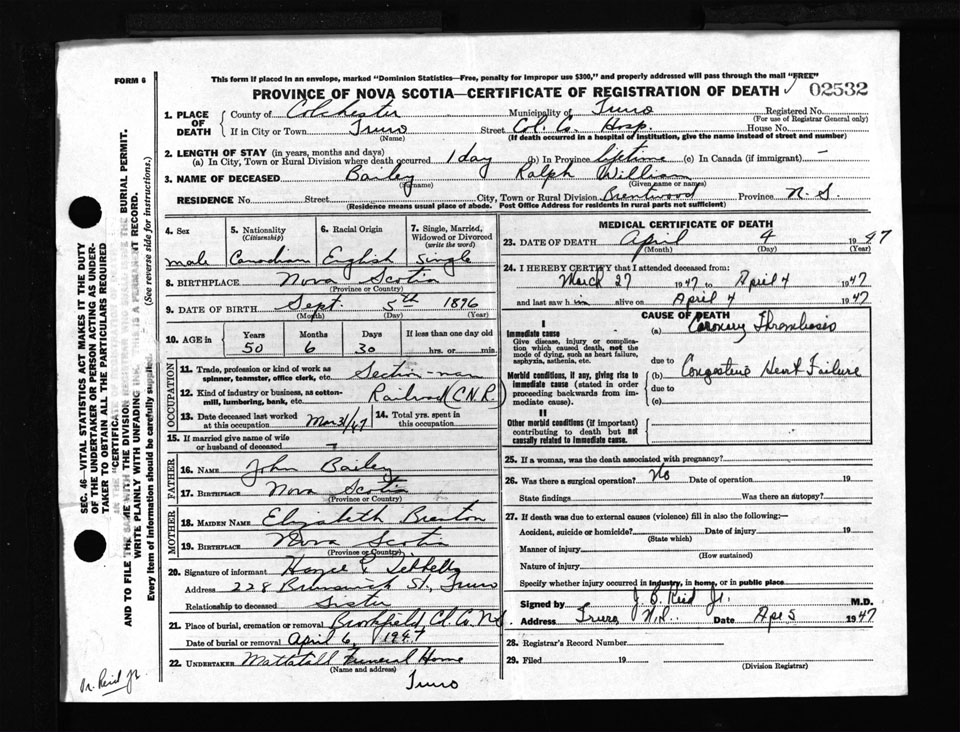 FORM 6
This form if placed in an envelope, marked "Dominion Statistics—Free, penalty for improper use $300," and properly addressed will pass through the mail "FREE"
PROVINCE OF NOVA SCOTIA—CERTIFICATE OF REGISTRATION OF DEATH 02532
1. PLACE OF DEATH
County of Colchester Municipality of Truro Registered No.
(For use of Registrar General only)
If in City or Town Truro Street Col. Co. Hosp. House No.
(Name) (If death occurred in a hospital or institution, give the name instead of street and number)
2. LENGTH OF STAY (in years, months and days)
(a) In City, Town or Rural Division where death occurred 1 day (b) In Province lifetime (c) In Canada (if immigrant) —
3. NAME OF DECEASED Bailey Ralph William
(Surname) (Given name or names)
RESIDENCE No. Street City, Town or Rural Division Brentwood Province N.S
(Residence means usual place of abode. Post Office Address for residents in rural parts not sufficient)
4. Sex male
5. Nationality (Citizenship) Canadian
6. Racial Origin English
7. Single, Married, Widowed or Divorced (write the word) Single
8. BIRTHPLACE Nova Scotia
(Province or Country)
9. DATE OF BIRTH Sept. 5th 1896
(Month) (Day) (Year)
10. AGE in Years Months Days If less than one day old
50 6 30 hrs. or min.
OCCUPATION
11. Trade, profession or kind of work as spinner, teamster, office clerk, etc. Section-man
12. Kind of industry or business, as cotton-mill, lumbering, bank, etc. Railroad (C.N.R.)
13. Date deceased last worked at this occupation Mar 31/47
14. Total yrs. spent in this occupation
15. If married give name of wife or husband of deceased
FATHER
16. NAME John Bailey
17. BIRTHPLACE Nova Scotia
(Province or Country)
MOTHER
18. MAIDEN NAME Elizabeth Brenton
19. BIRTHPLACE Nova Scotia
(Province or Country)
20. Signature of informant
Address 228 Brunswick St., Truro
Relationship to deceased Sister
21. Place of burial, cremation or removal Brookfield Col. Co. N.S.
Date of burial or removal April 6, 1947
22. UNDERTAKER Mattatall Funeral Home
(Name and address)
Truro
MEDICAL CERTIFICATE OF DEATH
23. DATE OF DEATH April 4 1947
(Month) (Day) (Year)
24. I HEREBY CERTIFY that I attended deceased from:
March 27 1947 to April 4 1947
and last saw him alive on April 4 1947
CAUSE OF DEATH
I
Immediate cause
Give disease, injury or complication which caused death, not the mode of dying, such as heart failure, asphyxia, asthenia, etc.
(a) Coronary Thrombosis
due to
Morbid conditions, if any, giving rise to immediate cause (stated in order proceeding backwards from immediate cause).
(b) Congestive Heart Failure
due to
(c)
II
Other morbid conditions (if important) contributing to death but not causally related to immediate cause.
25. If a woman, was the death associated with pregnancy?
26. Was there a surgical operation? No Date of operation 19
State findings Was there an autopsy?
27. If death was due to external causes (violence) fill in also the following:—
Accident, suicide or homicide? Date of injury 19
(State which)
Manner of injury
(How sustained)
Nature of injury
Specify whether injury occurred in industry, in home, or in public place
Signed by J. B. Reid Jr. M.D.
Address Truro, N.S. Date Apr 5 1947
28. Registrar's Record Number
29. Filed 19
(Division Registrar)
SEC. 46—VITAL STATISTICS ACT MAKES IT THE DUTY
OF THE UNDERTAKER OR PERSON ACTING AS UNDER-
TAKER TO OBTAIN ALL THE PARTICULARS REQUIRED
AND TO FILE THE SAME WITH THE DIVISION REGISTRAR WHO ISSUES THE BURIAL PERMIT.
WRITE PLAINLY WITH UNFADING INK. THIS IS A PERMANENT RECORD.
Every item of information should be carefully supplied. (See reverse side for instructions.)
Reid Jr.